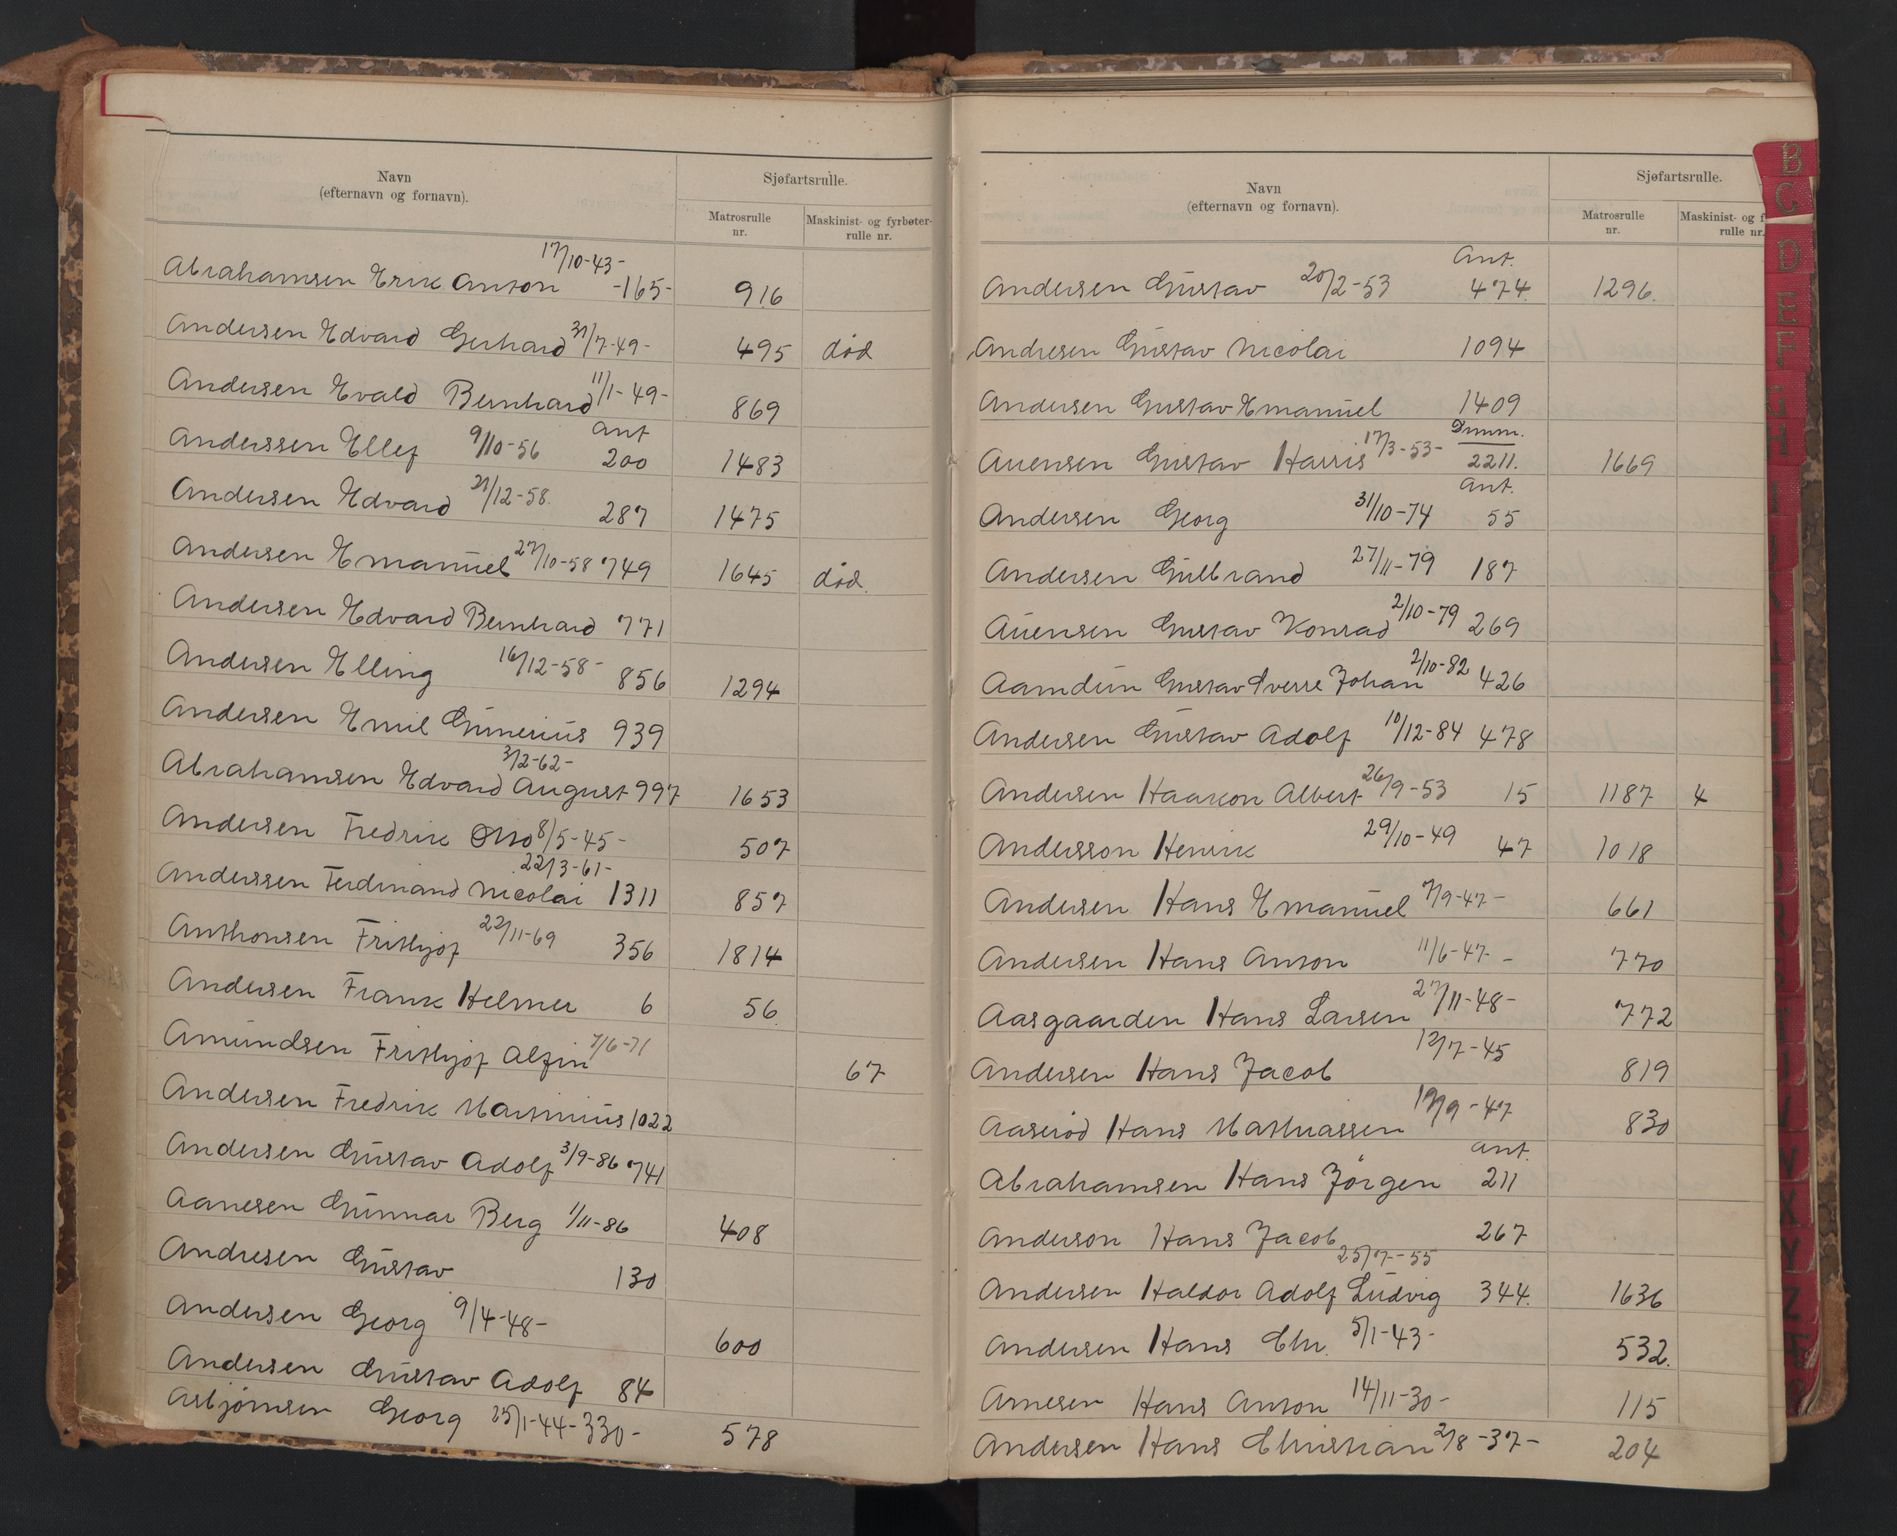 Navn
(efternavn og fornavn).
Sjøfartsrulle.
Matrosrulle nr.
Maskinist- og fyrbøter-rulle nr.
Abrahamsen Erik Anton 17/10-43- -165- 916
Andersen Edvard Gerhard 31/7-49- 495 død
Andersen Evald Bernhard 11/1-49- 869
Anderssen Ellef 9/10-56 ant 200 1483
Andersen Edvard 21/12-58. 287 1475
Andersen Emanuel 27/10-58 749 1645 død.
Andersen Edvard Bernhard 771
Andersen Elling 16/12-58- 856 1294
Andersen Emil Gunerius 939
Abrahamsen Edvard August 3/2-62- 997 1653
Andersen Fredrik Otto 8/5-45- 507
Anderssen Ferdinand Nicolai 22/3-61- 1311 857
Anthonsen Frithjof 22/11-69 356 1814
Andersen Frank Helmer 6 56
Amundsen Frithjof Alfin 7/6-71 67
Andersen Fredrik Martinius 1022
Andersen Gustav Adolf 3/9-86 741
Aanesen Gunnar Berg 1/11-86 408
Andresen Gustav 130
Andersen Georg 9/4-48- 600
Andersen Gustav Adolf 84
Asbjørnsen Georg 25/1-44-330- 578
Navn
(efternavn og fornavn).
Sjøfartsrulle.
Matrosrulle nr.
Maskinist- og f
rulle nr.
Andersen Gustav 20/2-53 Ant. 474 1296.
Andresen Gustav Nicolai 1094
Andersen Gustav Emanuel 1409
Auensen Gustav Harris 17/3-53- Dimm. 2211. 1669
Andersen Georg 31/10-74 ant. 55
Andersen Gulbrand 27/11-79 187
Auensen Gustav Konrad 2/10-79 269
Aamdun Gustav Sverre Johan 2/10-82 426
Andersen Gustav Adolf 10/12-84 478
Andersen Haakon Albert 26/9-53 15 1187 4
Andersson Henrik 29/10-49 47 1018
Andersen Hans Emanuel 7/9-47- 661
Andersen Hans Anton 11/6-47- 770
Aasgaarden Hans Larsen 27/11-48- 772
Andersen Hans Jacob 12/7-45 819
Aaserød Hans Mathiassen 19/9-47 830
Abrahamsen Hans Jörgen ant. 211
Anderson Hans Jacob 267
Andersen Haldor Adolf Ludvig 25/7-55 344. 1636
Andersen Hans Chr. 5/1-43- 532.
Arnesen Hans Anton 14/11-30- 115
Andersen Hans Christian 2/8-37- 204
B
C
D
E
F